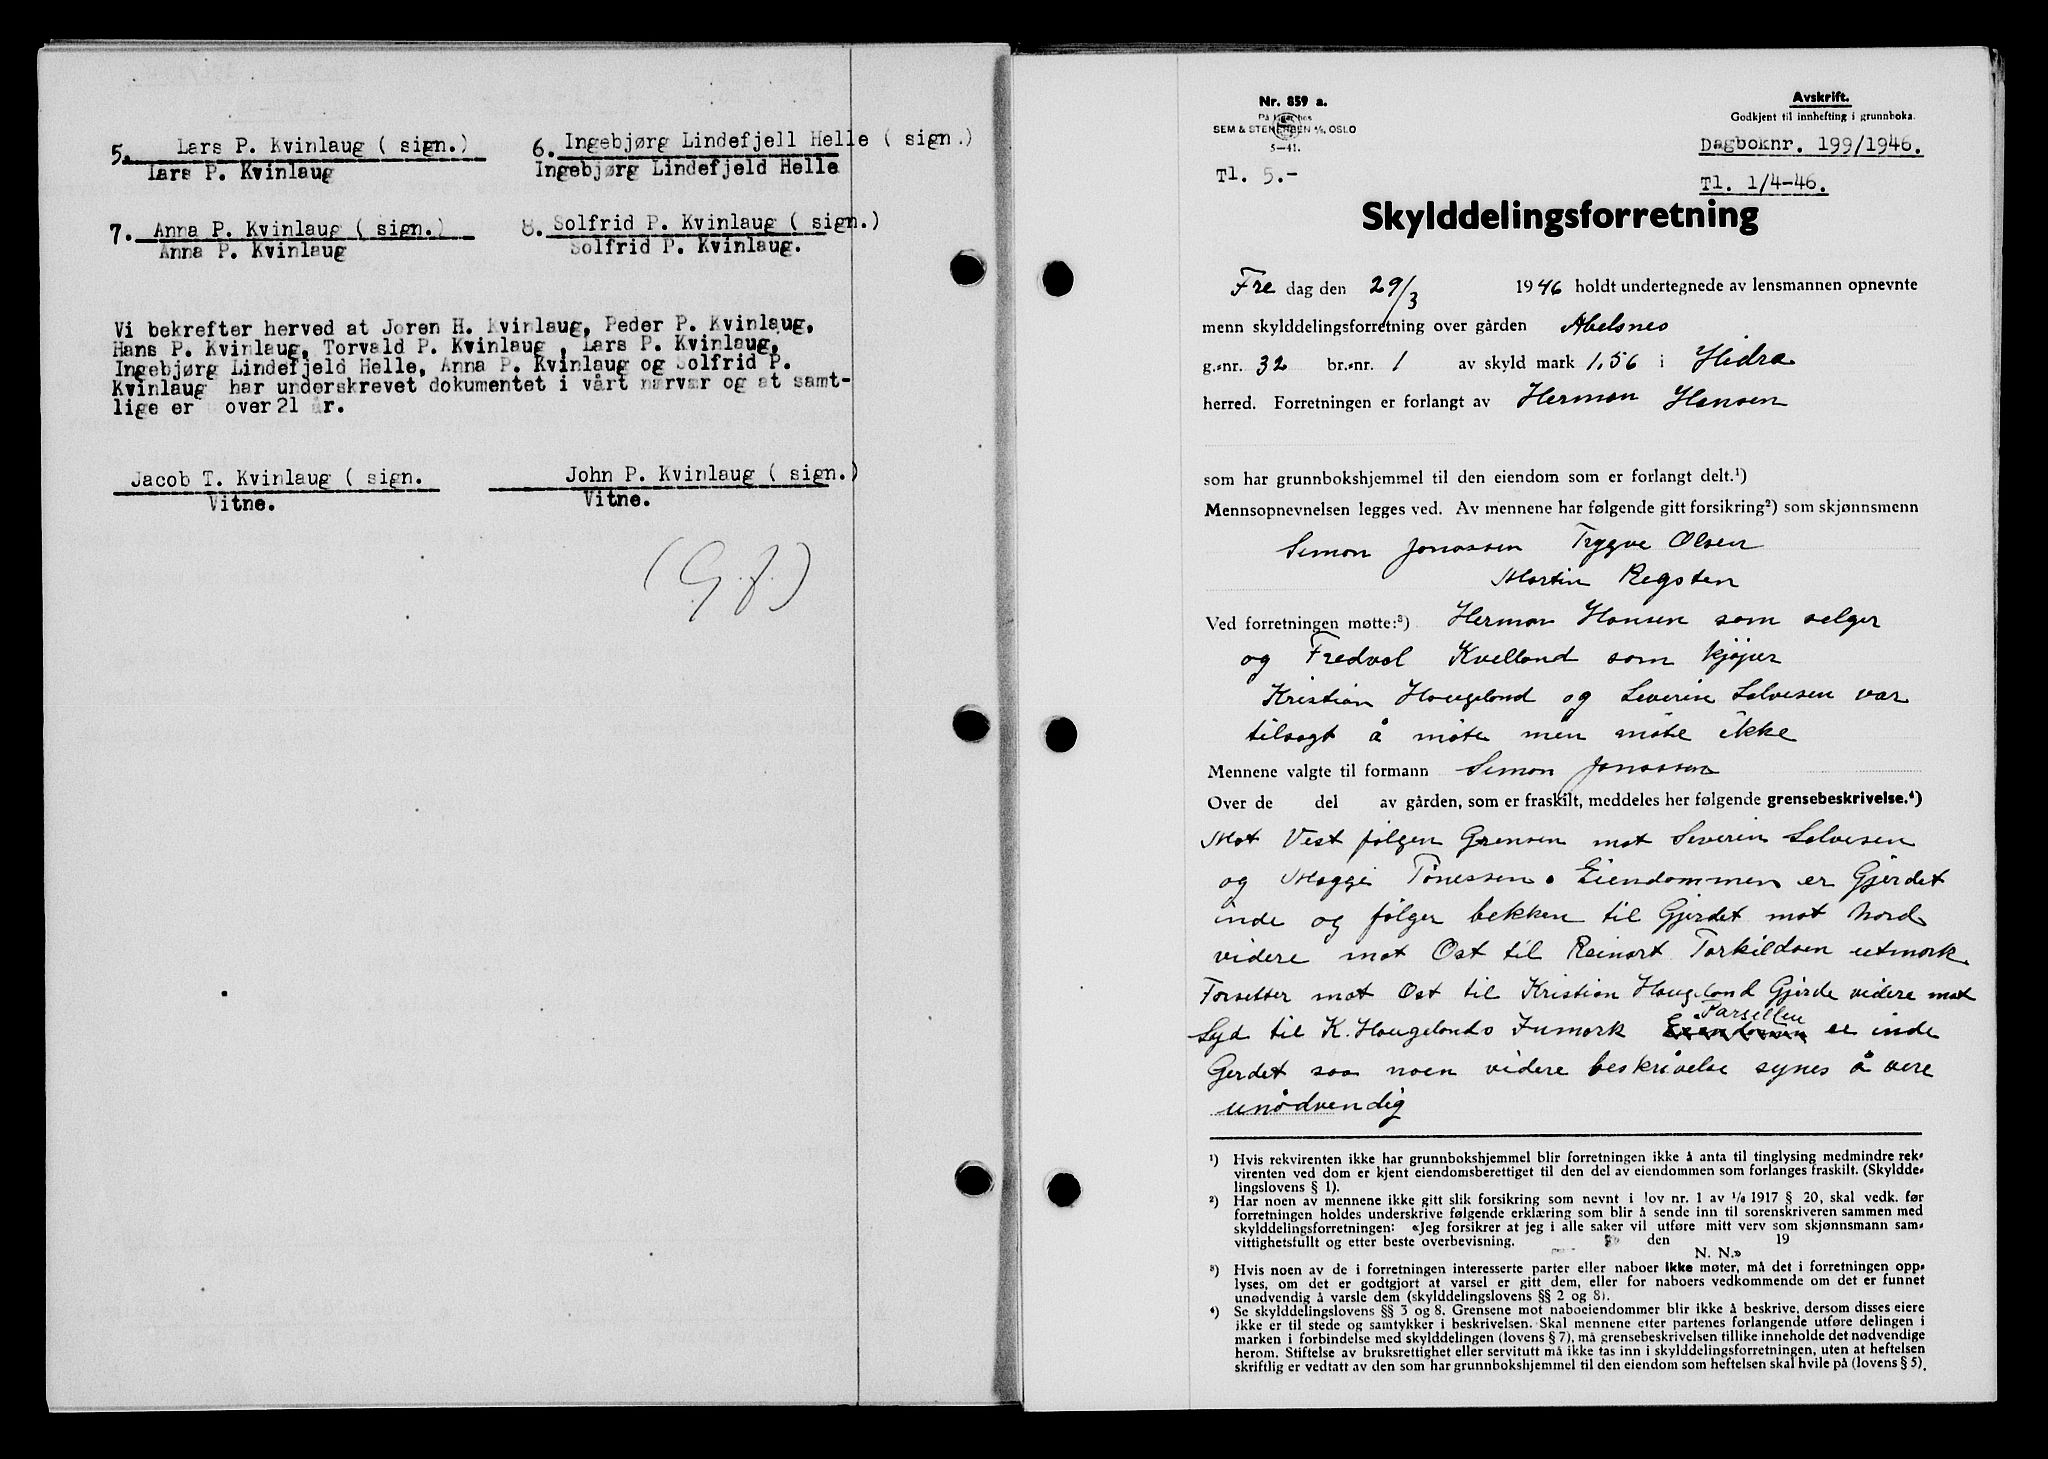 5. Lars P. Kvinlaug ( sign.)
Lars P. Kvinlaug
6. Ingebjørg Lindefjell Helle ( sign.)
Ingebjørg Lindefjeld Helle
7. Anna P. Kvinlaug ( sign.)
Anna P. Kvinlaug
8. Solfrid P. Kvinlaug ( sign.)
Solfrid P. Kvinlaug.
Vi bekrefter herved at Joren H. Kvinlaug, Peder P. Kvinlaug,
Hans P. Kvinlaug, Torvald P. Kvinlaug , Lars P. Kvinlaug,
Ingebjørg Lindefjeld Helle, Anna P. Kvinlaug og Solfrid P.
Kvinlaug har underskrevet dokumentet i vårt nærvær og at samt-
lige er over 21 år.
Jacob T. Kvinlaug ( sign.
Vitne.
John P. Kvinlaug ( sign.)
Vitne.
(G.f.)
Nr. 859 a.
På lager hos
SEM & STENERSEN A/S, OSLO
5-41.
Tl. 5.-
Avskrift.
Godkjent til innhefting i grunnboka.
Dagboknr. 199/1946.
Tl. 1/4-46.
Skylddelingsforretning
Fre dag den 29/3 1946 holdt undertegnede av lensmannen opnevnte
menn skylddelingsforretning over gården Abelsnes
g.-nr. 32 br.-nr. 1 av skyld mark 1,56 i Hidra
herred. Forretningen er forlangt av Herman Hansen
som har grunnbokshjemmel til den eiendom som er forlangt delt.¹)
Mennsopnevnelsen legges ved. Av mennene har følgende gitt forsikring²) som skjønnsmenn
Simon Jonassen Trygve Olsen
Martin Regsten
Ved forretningen møtte:³) Herman Hansen som selger
og Fredvol Kvelland som kjøper
Kristian Haugeland og Severin Salvesen var
tilsagt å møte men møte ikke
Mennene valgte til formann Simon Jonassen
Over de del av gården, som er fraskilt, meddeles her følgende grensebeskrivelse.⁴)
Mot Vest følgen Grensen mot Severin Salvesen
og Maggi Tønessen. Eiendommen er Gjerdet
inde og følger bekken til Gjerdet mot Nord
videre mot Ost til Reinart Tarkildsen utmark
Forsetter mot Ost til Kristian Haugeland Gjerde videre mot
Syd til K. Haugelands Inmark Parsellen er inde
Gerdet saa noen videre beskrivelse synes å vere
unødvendig
¹) Hvis rekvirenten ikke har grunnbokshjemmel blir forretningen ikke å anta til tinglysing medmindre rek-
virenten ved dom er kjent eiendomsberettiget til den del av eiendommen som forlanges fraskilt. (Skyldde-
lingslovens § 1).
²) Har noen av mennene ikke gitt slik forsikring som nevnt i lov nr. 1 av 1/6 1917 § 20, skal vedk. før
forretningen holdes underskrive følgende erklæring som blir å sende inn til sorenskriveren sammen med
skylddelingsforretningen: «Jeg forsikrer at jeg i alle saker vil utføre mitt verv som skjønnsmann sam-
vittighetsfullt og etter beste overbevisning. den 19
N. N.»
³) Hvis noen av de i forretningen interesserte parter eller naboer ikke møter, må det i forretningen opp-
lyses, om det er godtgjort at varsel er gitt dem, eller for naboers vedkommende om det er funnet
unødvendig å varsle dem (skylddelingslovens §§ 2 og 8).
⁴) Se skylddelingslovens §§ 3 og 8. Grensene mot naboeiendommer blir ikke å beskrive, dersom disses eiere
ikke er til stede og samtykker i beskrivelsen. Skal mennene etter partenes forlangende utføre delingen i
marken i forbindelse med skylddelingen (lovens § 7), må grensebeskrivelsen tillike inneholde det nødvendige
herom. Stiftelse av bruksrettighet eller servitutt må ikke tas inn i skylddelingsforretningen, uten at heftelsen
skriftlig er vedtatt av den som har grunnbokshjemmel til den eiendom som heftelsen skal hvile på (lovens § 5).